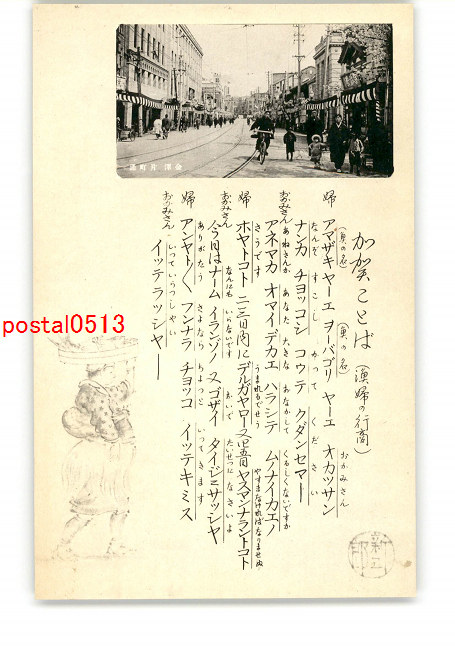 金澤 片町通
加賀ことば (漁婦の行商)
(魚の名) (魚の名) おかみさん
婦 アマザキャーエ ヲーバゴリ ヤーエ オカッツサン
なんぞ すこし かつて ください
ナンカ チョッコシ コウテ クダンセマー
おかみさん あねさんか あなた 大きな おなかして くるしくないですか
アネマカ オマイデカエ ハラシテ ムノナイカエノ
さうです うまれるでせう やすまなければなりませぬ
婦 ホヤトコト 二三日内ニデルガヤロー
ヤスマンナラントコト
おかみさん なんにも いらないです おいで たいせつに なさいよ
今日はナーム イランゾノ 又ゴザイ タイジニサッシャヤ
ありがたう さよなら ちょっと いつてきます
婦 アンヤト〱 フンナラ チョッコ イッテキミス
おかみさん いつていらつしやい
イッテラッシャー
postal0513